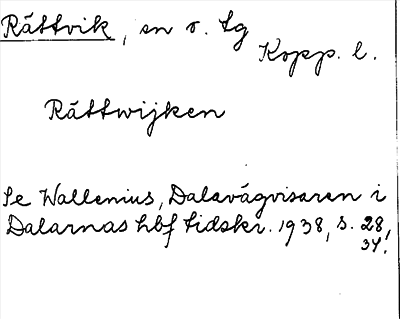 Rättvik, sn o. tg
Kopp. l.
Rättwijken
Se Wallenius, Dalavägvisaren i
Dalarnas hbf tidskr. 1938, s. 28,
34.